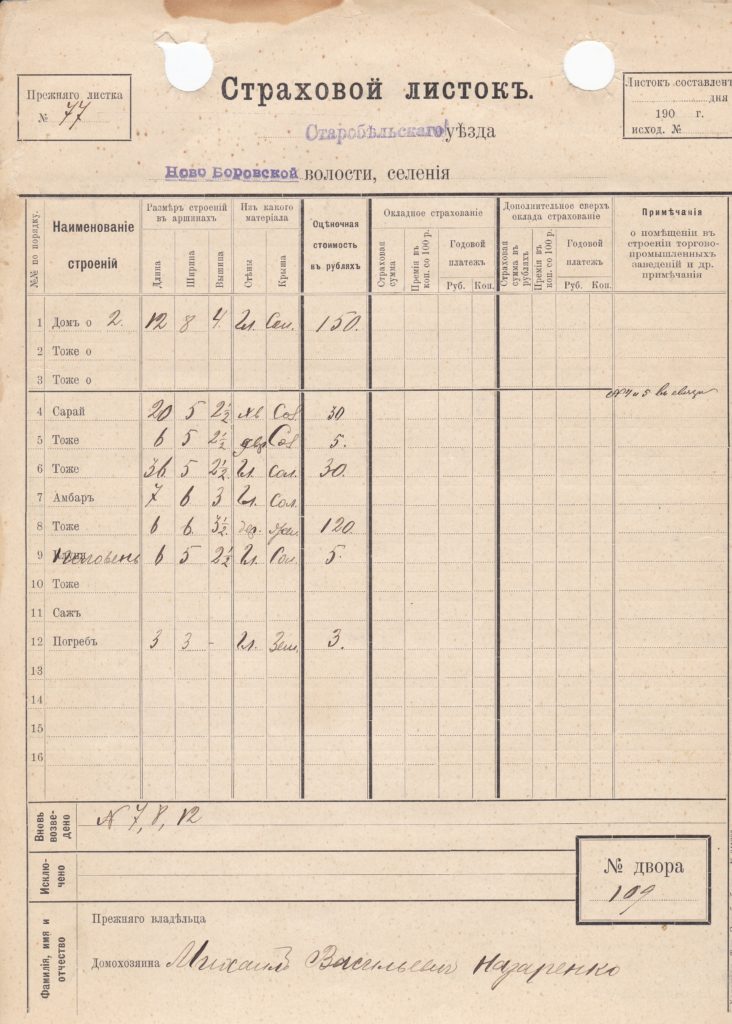 Прежняго листка
№ 77
Страховой листокъ.
Листокъ составленъ
дня
190 г.
исход. №
Старобѣльскаго уѣзда
Ново Боровской волости, селенія
№№ по порядку.
Наименованіе строеній
Размѣръ строеній въ аршинахъ
Длина
Ширина
Вышина
Изъ какого матеріала
Стѣны
Крыша
Оцѣночная стоимость въ рубляхъ
Окладное страхованіе
Страховая сумма
Премія въ коп. со 100 р.
Годовой платежъ
Руб. Коп.
Дополнительное сверхъ оклада страхованіе
Страховая сумма въ рубляхъ
Премія въ коп. со 100 р.
Годовой платежъ
Руб. Коп.
Примѣчанія
о помѣщеніи въ строеніи торгово-промышленныхъ заведеній и др. примѣчанія
1 Домъ о 2. 12 8 4. Гл. Сол. 150.
2 Тоже о
3 Тоже о
№ 4 и 5 въ связи
4 Сарай 20 5 2½ Сол 30
5 Тоже 6 5 2½ дер Сол 5.
6 Тоже 36. 5 2½ Гл. сол. 30.
7 Амбаръ 7 6 3 Гл. Сол.
8 Тоже 6 6. 3½ дер. 120.
9 6 5 2½ Гл Сол. 5.
10 Тоже
11 Сажъ
12 Погребъ 3 3 - Гл. Зем. 3.
13
14
15
16
Вновь возве-дено
№ 7, 8, 12
Исклю-чено
№ двора
109
Фамилія, имя и отчество
Прежняго владѣльца
Домохозяина Михаилъ Васильевич Назаренко